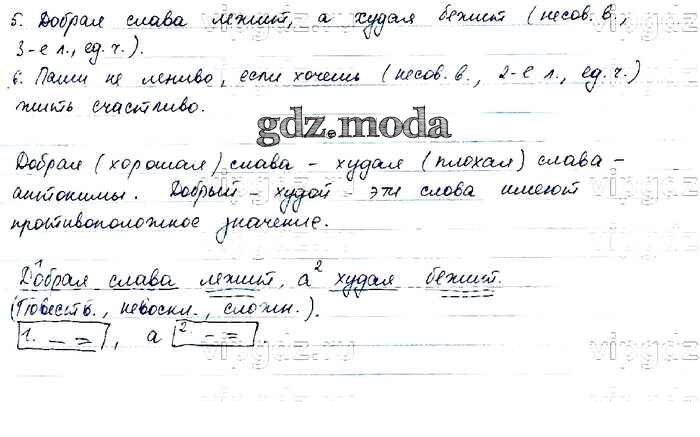 5. Добрая слава лежит, а худая бежит (несов. в.,
3-е л., ед. ч.).
6. Паши не лениво, если хочешь (несов. в., 2-е л., ед. ч.)
жить счастливо.
gdz.moda
Добрая (хорошая) слава – худая (плохая) слава –
антонимы. Добрый – худой – эти слова имеют
противоположное значение.
1 Добрая слава лежит, а 2 худая бежит.
(Повеств., невоскл., сложн.).
1. – = , а 2. – =
vipgdz.ru